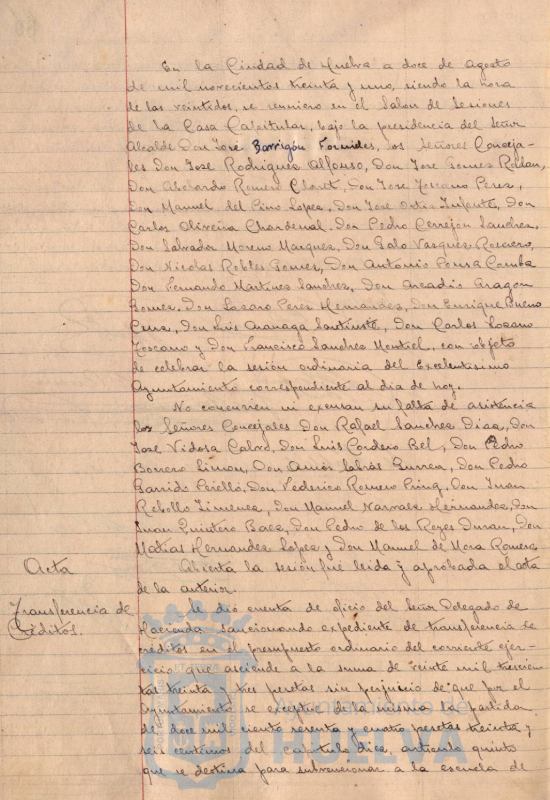 En la Ciudad de Huelva a doce de Agosto
de mil novecientos treinta y uno, siendo la hora
de las veintidos, se reunieron en el Salon de Sesiones
de la Casa Capitular, bajo la presidencia del Señor
Alcalde Don José Barrigón Fornieles, los Señores Conceja-
les Don José Rodriguez Alfonso, Don Jose Gomez Roldan,
Don Abelardo Romero Claret, Don Jose Toscano Perez,
Don Manuel del Pino Lopez, Don José Ortiz Infante, Don
Carlos Oliveira Chardenal, Don Pedro Cerrejon Sanchez,
Don Salvador Moreno Marquez, Don Galo Vazquez Romero,
Don Nicolas Robles Gomez, Don Antonio Pousa Camba
Don Fernando Martinez Sanchez, Don Arcadio Aragon
Gomez, Don Lazaro Perez Hernandez, Don Enrique Bueno
Cruz, Don Luis Ananaga, Don Carlos Lozano
Toscano y Don Francisco Sanchez Montiel, con objeto
de celebrar la sesión ordinaria del Excelentisimo
Ayuntamiento correspondiente al dia de hoy.
No concurrien ni excusan su falta de asistencia
los Señores Concejales Don Rafael Sanchez Diaz, Don
Jose Vidosa Calvo, Don Luis Cordero Bel, Don Pedro
Borrero Limon, Don Amós Sabrás Gurrea, Don Pedro
Garrido Perelló, Don Federico Romero Pring, Don Juan
Rebollo Jimenez, Don Manuel Narvaez Hernandez, Don
Juan Quintero Baez, Don Pedro de los Reyes Duran, Don
Matías Hernandez Lopez y Don Manuel de Mora Romero.
Acta
Abierta la sesión fué leida y aprobada el acta
de la anterior.
Transferencia de
Créditos.
Se dió cuenta de oficio del Señor Delegado de
Hacienda sancionando expediente de transferencia de
créditos en el presupuesto ordinario del corriente ejer-
cicio que asciende a la suma de veinte mil trescien-
tas treinta y tres pesetas sin perjuicio de que por el
Ayuntamiento se exceptue de la misma la partida
de doce mil ciento sesenta y cuatro pesetas treinta y
seis centimos del capitulo diez, articulo quinto
que se destina para subvencionar a la escuela de
Ayuntamiento de
HUELVA